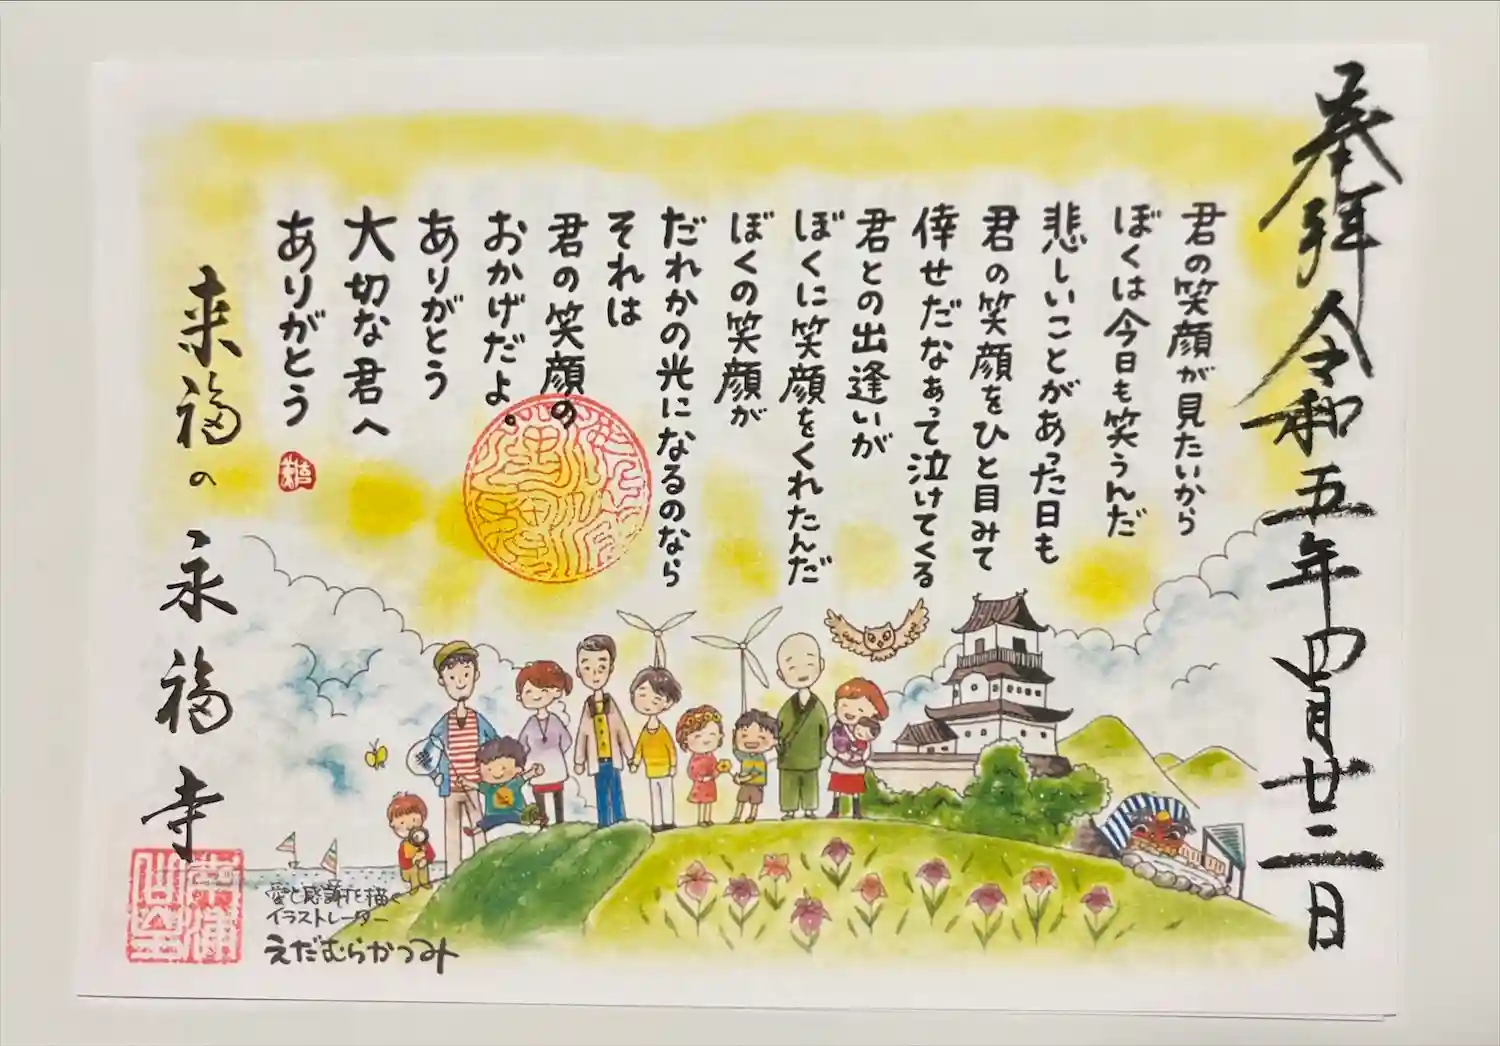 奉拝 令和五年四月廿二日
君の笑顔が見たいから
ぼくは今日も笑うんだ
悲しいことがあった日も
君の笑顔をひと目みて
倖せだなぁって泣けてくる
君との出逢いが
ぼくに笑顔をくれたんだ
ぼくの笑顔が
だれかの光になるのなら
それは
君の笑顔の
おかげだよ。
ありがとう
大切な君へ
ありがとう
来福の 永福寺
愛と感謝を描く
イラストレーター
えだむらかつみ